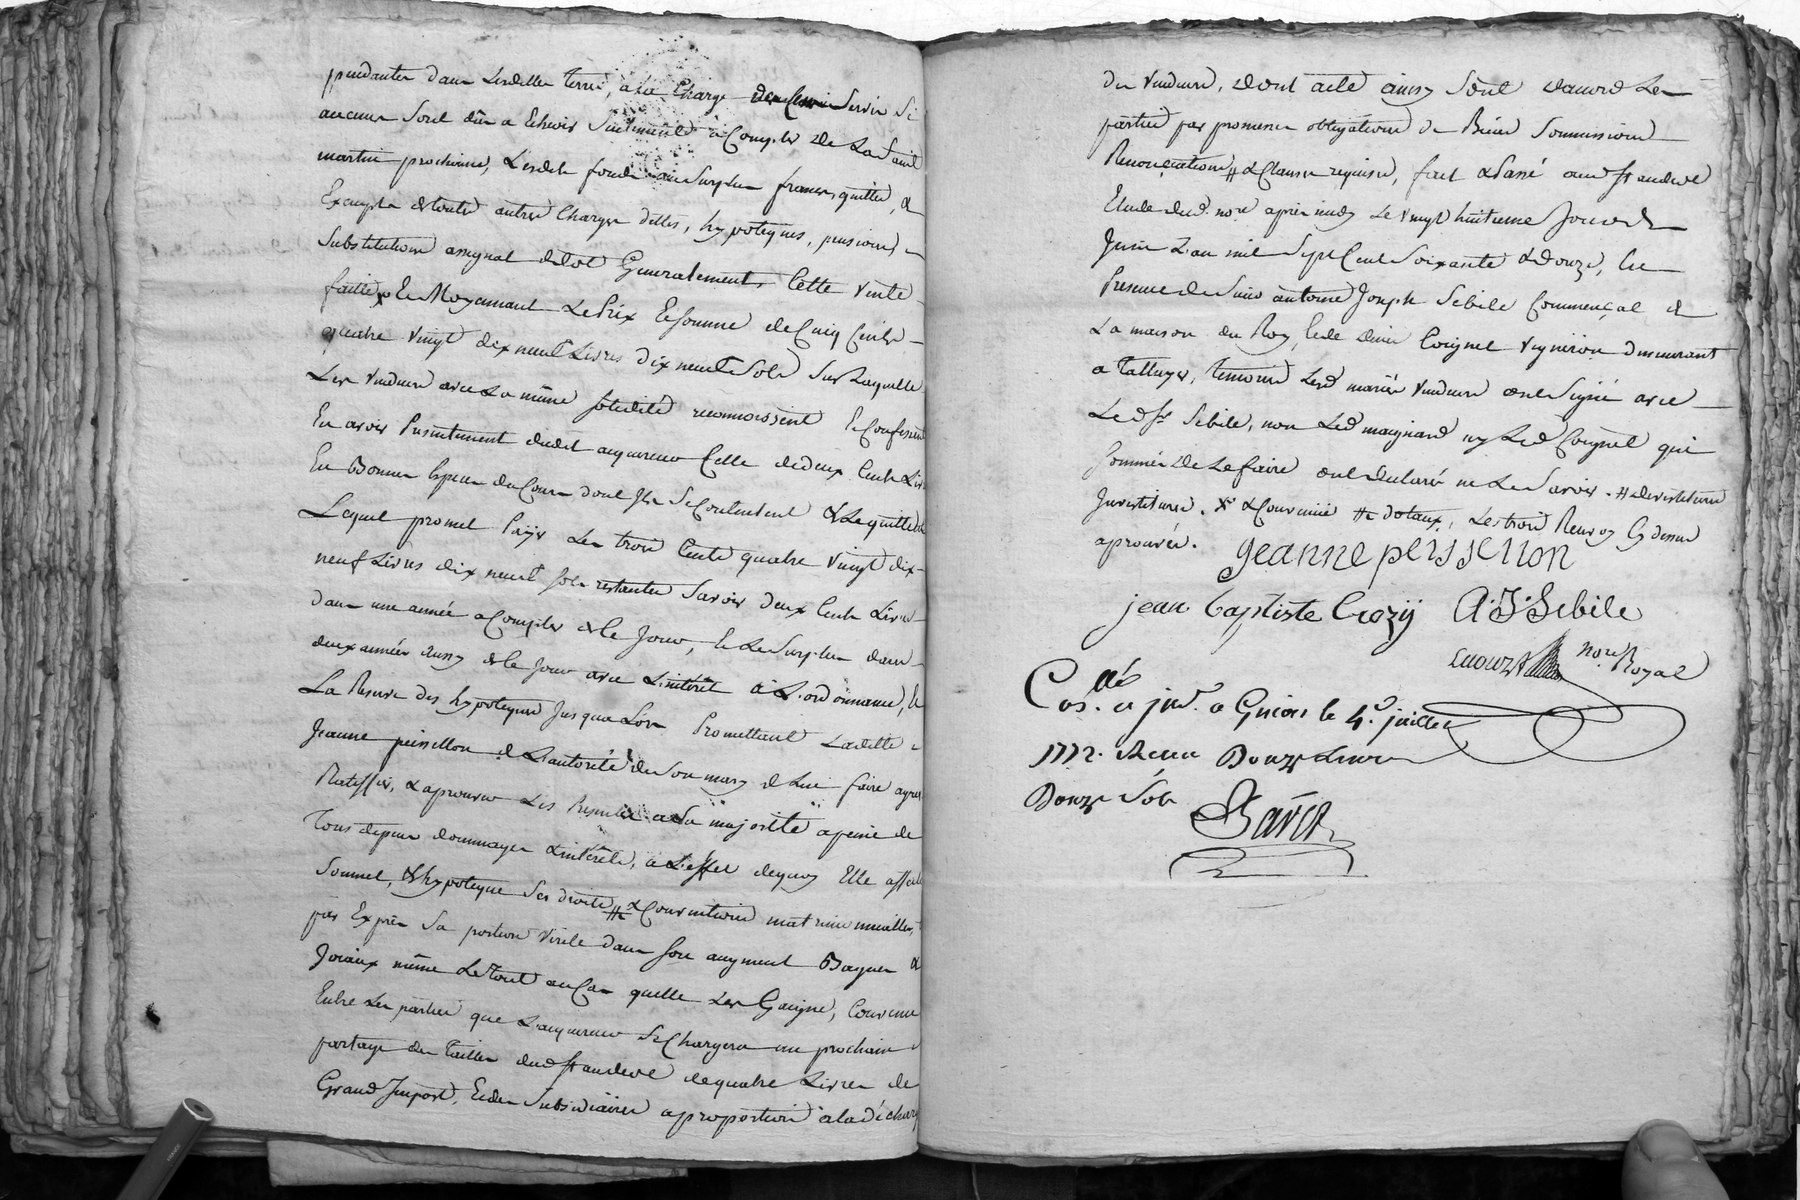 pendantes dans lesdittes terres, a la Charge den servis si
aucuns sont dus a Echoir seulement a Compter de la saint
martin prochaine, lesdits fonds au surplus francs, quittes, &
Exempts de toutes autres Charges dettes, hypoteques, pensions
substitutions assignal de dot Generalement, Cette vente
faitte Moyennant Le Prix Et somme de Cinq Cents
quatre vingt dix neuf Livres dix neuf sols sur Laquelle
Les vendeurs avec La même solidité reconnoissent Et Confessent
En avoir Presentement dudit acquereur Celle de deux Cents Livres
En Bonnes Especes du Cours dont Ils se Contentent & Le quittent
Lequel promet Payer Les trois Cents quatre vingt dix
neuf Livres dix neuf sols restantes savoir deux Cents Livres
dans une année a Compter de Ce Jour, Et Le surplus dans
deux années aussy de Ce Jour avec L'interêt a L'ordonnance, &
La Reserve des hypoteques Jusqua Lors Promettant Laditte
Jeanne peissellon de L'autorité de son mary de Lui faire agréer
Ratiffier, & aprouver Les Presentes a sa majorité a peine de
Tous depens dommages & interêts, a L'effet dequoy Elle affecte
soumet, & hypoteque ses droits # & Conventions matrimonialles,
par Exprès sa portion virile dans son augment Bagues &
Joiaux même Le Tout au Cas quelle Les Gaigne, Convenu
Entre Les parties que L'acquereur se Chargera au prochain
partage des tailles dud St andeol de quatre Livres de
Grand Impost, Et des subsidiaires a proportion a la décharge
des vendeurs, dont acte ainsy sont d'acord Les
parties par promesses obligations de Biens soumissions
Renonciations # & Clauses requises, fait & Passé aud St andeol
Etude dud. nore après midy Le vingt huitieme Jour de
Juin L'an mil sept Cent soixante & douze, En
Presence de sieur antoine Joseph Sebile Commençal de
La maison du Roy, Et de Coignet vigneron demeurant
a Talluyer, temoins Lesd mariés vendeurs ont signé avec
Led sr Sebile, non Led maignard ny Led Coignet qui
sommés de Le faire ont declaré ne Le savoir. #
Investiture. X & Convenüe # dotaux, Les trois Renvoy Cy dessus
aprouvés. Jeanne peissellon
jean baptiste Crozÿ A.J. Sebile
nore Royal
Collé
Cos. a Givors le 4e. juillet
1772. Reçu Douze Livres
Douze Sols